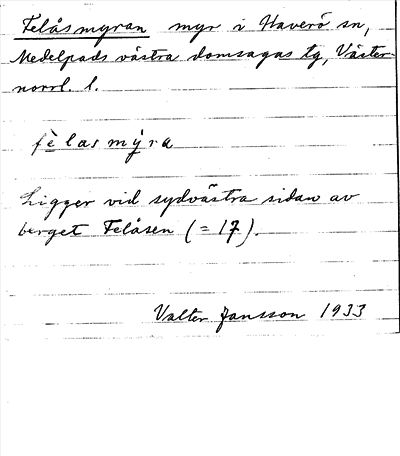 Felåsmyran myr i Haverö sn,
Medelpads västra domsagas tg, Väster-
norrl. l.
fè las mý ra
Ligger vid sydvästra sidan av
berget Felåsen (= 17).
Valter Jansson 1933